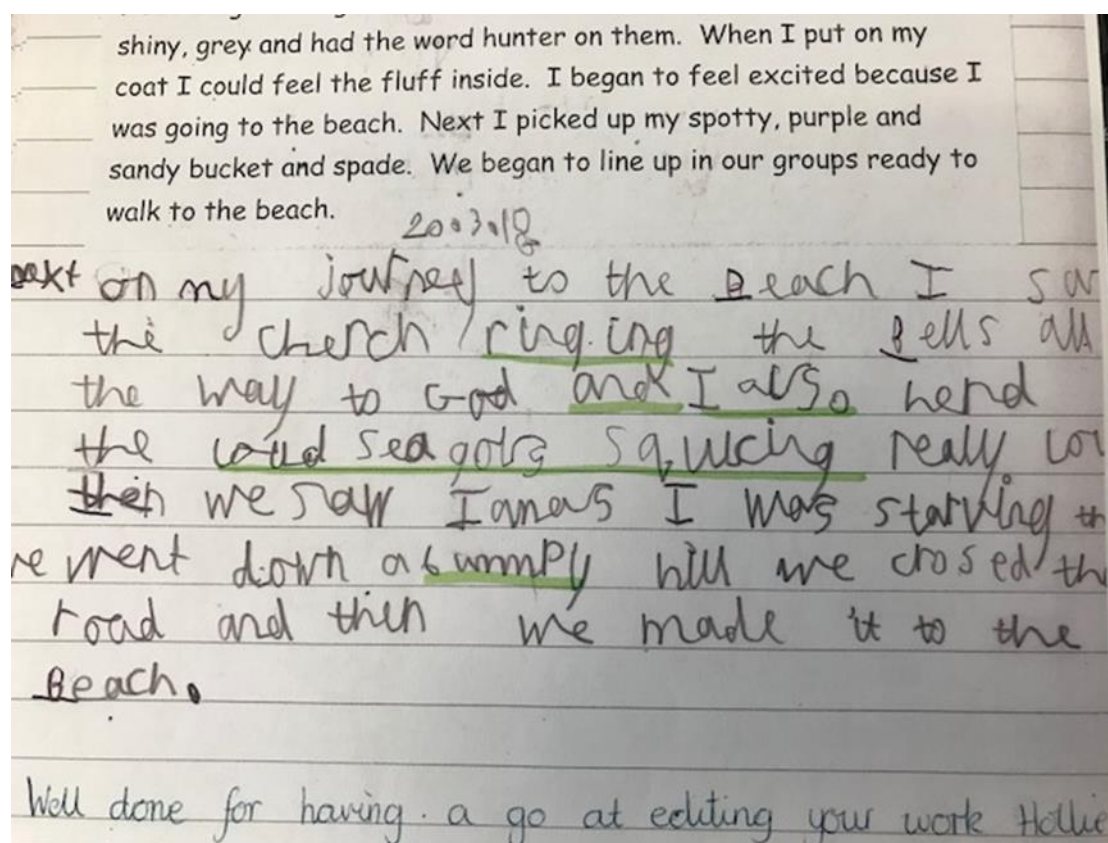 shiny, grey and had the word hunter on them. When I put on my
coat I could feel the fluff inside. I began to feel excited because I
was going to the beach. Next I picked up my spotty, purple and
sandy bucket and spade. We began to line up in our groups ready to
walk to the beach.
20.3.18
next on my journey to the Beach I sa
the cherch ringing the Bells all
the way to God and I also herd
the loud seagols squcing really lou
then we saw I was starving th
we went down a bummpy hill we crosed th
road and then we made it to the
Beach.
Well done for having a go at editing your work Hollie